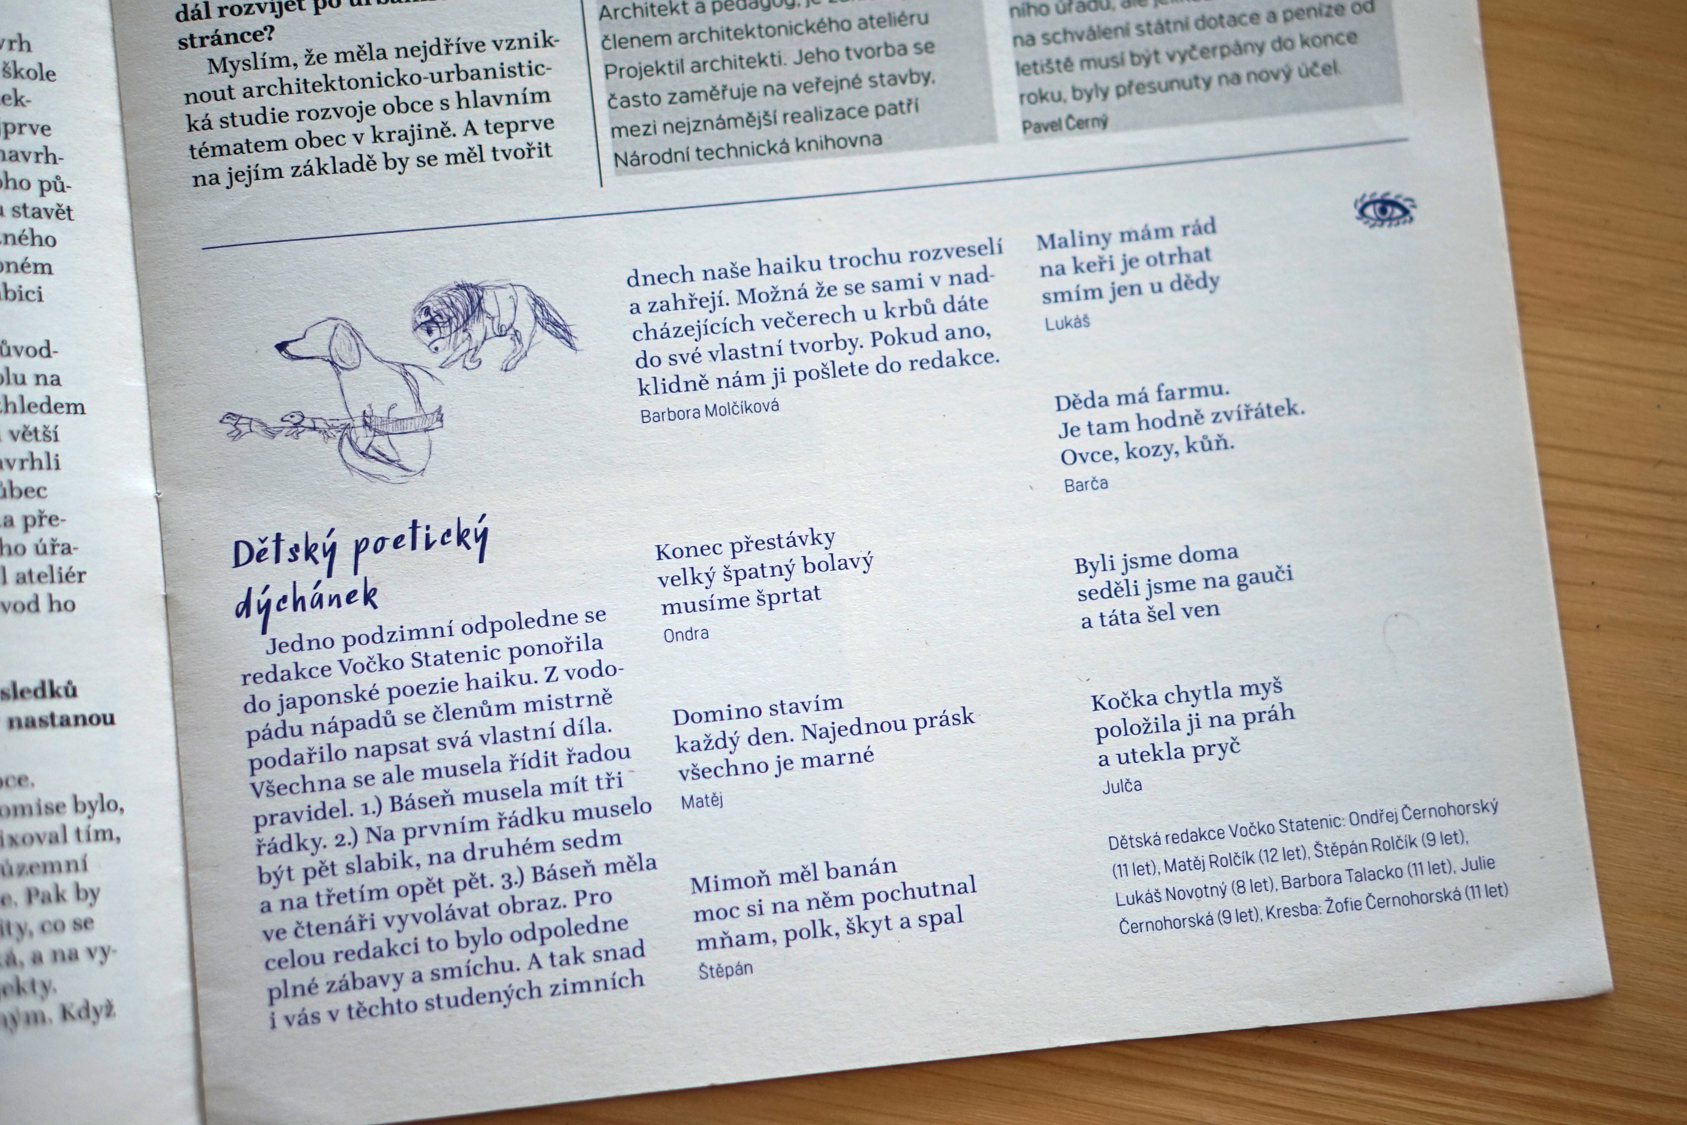 vrh
škole
ek-
prve
navrh-
oho pů-
u stavět
ného
oném
bici
ůvod-
olu na
hledem
větší
avrhli
ůbec
a pře-
ho úřa-
l ateliér
vod ho
sledků
nastanou
oce,
omise bylo,
ixoval tím,
územní
e. Pak by
ity, co se
á, a na vy-
jekty.
ným. Když
dál rozvíjet po
stránce?
Myslím, že měla nejdříve vznik-
nout architektonicko-urbanistic-
ká studie rozvoje obce s hlavním
tématem obec v krajině. A teprve
na jejím základě by se měl tvořit
Architekt a pedagog, je
členem architektonického ateliéru
Projektil architekti. Jeho tvorba se
často zaměřuje na veřejné stavby,
mezi nejznámější realizace patří
Národní technická knihovna
ního úřadu, ale
na schválení státní dotace a peníze od
letiště musí být vyčerpány do konce
roku, byly přesunuty na nový účel.
Pavel Černý
Dětský poetický
dýchánek
Jedno podzimní odpoledne se
redakce Vočko Statenic ponořila
do japonské poezie haiku. Z vodo-
pádu nápadů se členům mistrně
podařilo napsat svá vlastní díla.
Všechna se ale musela řídit řadou
pravidel. 1.) Báseň musela mít tři
řádky. 2.) Na prvním řádku muselo
být pět slabik, na druhém sedm
a na třetím opět pět. 3.) Báseň měla
ve čtenáři vyvolávat obraz. Pro
celou redakci to bylo odpoledne
plné zábavy a smíchu. A tak snad
i vás v těchto studených zimních
dnech naše haiku trochu rozveselí
a zahřejí. Možná že se sami v nad-
cházejících večerech u krbů dáte
do své vlastní tvorby. Pokud ano,
klidně nám ji pošlete do redakce.
Barbora Molčíková
Konec přestávky
velký špatný bolavý
musíme šprtat
Ondra
Domino stavím
každý den. Najednou prásk
všechno je marné
Matěj
Mimoň měl banán
moc si na něm pochutnal
mňam, polk, škyt a spal
Štěpán
Maliny mám rád
na keři je otrhat
smím jen u dědy
Lukáš
Děda má farmu.
Je tam hodně zvířátek.
Ovce, kozy, kůň.
Barča
Byli jsme doma
seděli jsme na gauči
a táta šel ven
Kočka chytla myš
položila ji na práh
a utekla pryč
Julča
Dětská redakce Vočko Statenic: Ondřej Černohorský
(11 let), Matěj Rolčík (12 let), Štěpán Rolčík (9 let),
Lukáš Novotný (8 let), Barbora Talacko (11 let), Julie
Černohorská (9 let), Kresba: Žofie Černohorská (11 let)